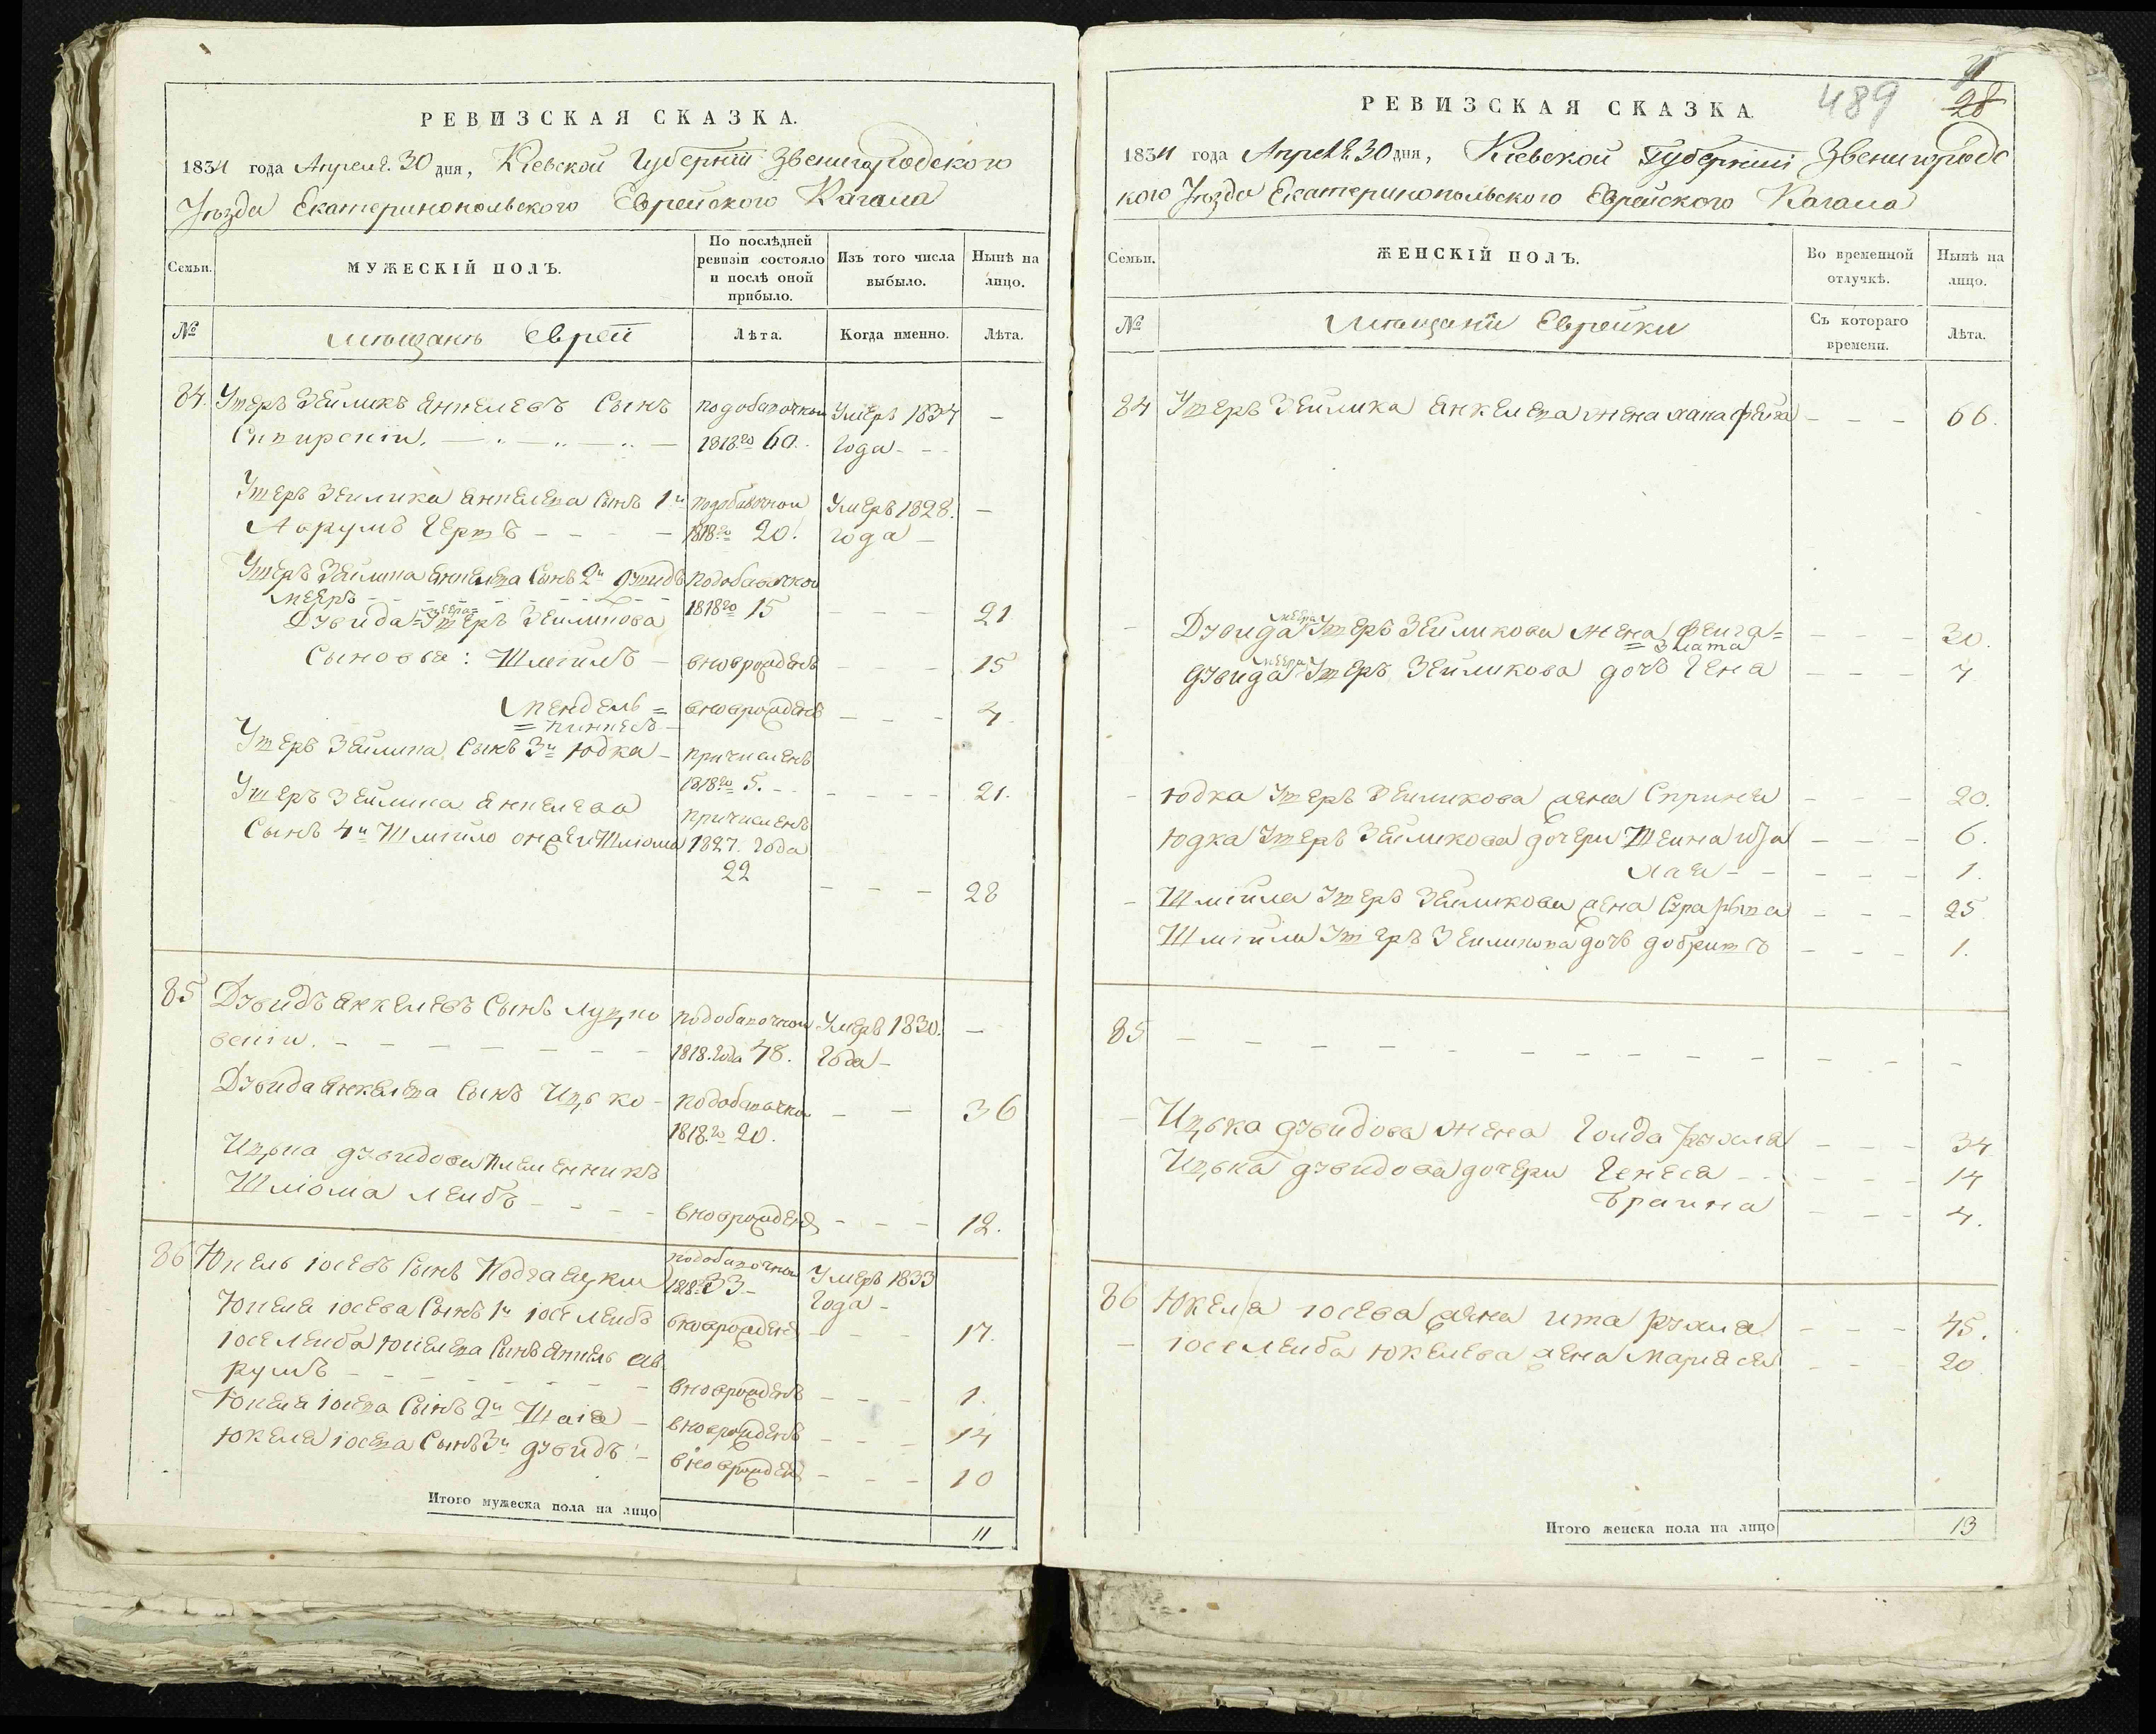 РЕВИЗСКАЯ СКАЗКА.
1834 года Апреля 30 дня, Кіевской Губерніи Звенигородского
Уѣзда Екатеринопольского Еврейского Кагала
Семьи.
МУЖЕСКІЙ ПОЛЪ.
По послѣдней ревизіи состояло и послѣ оной прибыло.
Изъ того числа выбыло.
Нынѣ на лицо.
№
мѣщанъ Еврей
Лѣта.
Когда именно.
Лѣта.
84. Ушеръ Зейликъ Янкелевъ Сынъ подобавочной Умеръ 1834 –
1818го 60. года
Ушеръ Зейлика Янкелева Сынъ 1й подобавочной Умеръ 1828. –
Аврумъ Гершъ 1818го 20. года
Ушеръ Зейлика Янкелева Сынъ 2й Дувидъ подобавочной
Мееръ 1818го 15 21
Меера
Дувида Ушеръ Зейликова
Сыновья: Шмійлъ вновьрожденъ 15
Мендель = вновьрожденъ 4
= Пинкесъ
Ушеръ Зейлика Сынъ 3й Юдка причисленъ
1818го 5. 21.
Ушеръ Зейлика Янкелева причисленъ
Сынъ 4й Шмійло онже и Шліома 1827. года
22
28
85 Дувидъ Янкелевъ Сынъ подобавочной Умеръ 1830. –
1818. года 48. года
Дувида Янкелева Сынъ Ицько подобавочной 36
1818го 20.
Ицька Дувидова племенникъ
Шліома Лейбъ вновьрожденъ 12.
86 Юкель Іосевъ Сынъ подобавочной Умеръ 1833
1818го 33 года
Юкеля Іосева Сынъ 1й Іосе Лейбъ вновьрожденъ 17.
Іосе Лейба Юкелева Сынъ Янкель Ав
румъ вновьрожденъ 1.
Юкеля Іосева Сынъ 2й Шаія вновьрожденъ 14
Юкеля Іосева Сынъ 3й Дувидъ вновьрожденъ 10
Итого мужеска пола на лицо 11
РЕВИЗСКАЯ СКАЗКА.
489
28
1834 года Апреля 30 дня, Кіевской Губерніи Звенигородс
кого Уѣзда Екатеринопольского Еврейского Кагала
Семьи.
ЖЕНСКІЙ ПОЛЪ.
Во временной отлучкѣ.
Нынѣ на лицо.
№
мѣщанки Еврейки
Съ котораго времени.
Лѣта.
84 Ушеръ Зейлика Янкелева жена Хана Фейга 66.
Меера
Дувида Ушеръ Зейликова жена Фейга = 30.
= Злата
Меера
Дувида Ушеръ Зейликова дочь Гена 7
Юдка Ушеръ Зейликова жена Спринця 20.
Юдка Ушеръ Зейликова дочери Шейна 6.
Хая 1.
Шмійла Ушеръ Зейликова жена Сура Ривка 25
Шмійла Ушеръ Зейликова дочь Добришъ 1.
85
Ицька Дувидова жена Голда Рухля 34
Ицька Дувидова дочери Генеся 14
Браина 4.
86 Юкеля Іосева жена Ита Рухля 45.
Іосе Лейба Юкелева жена Маріася 20
Итого женска пола на лицо 13